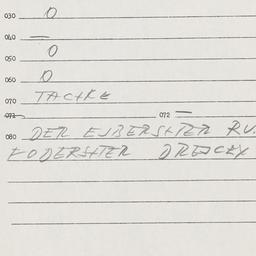 030 0
040 —
050 0
060 0
070 TACHRE
072 072 —
080 DER EJBERSHTER RU.
FODERSHTER DREJCEX